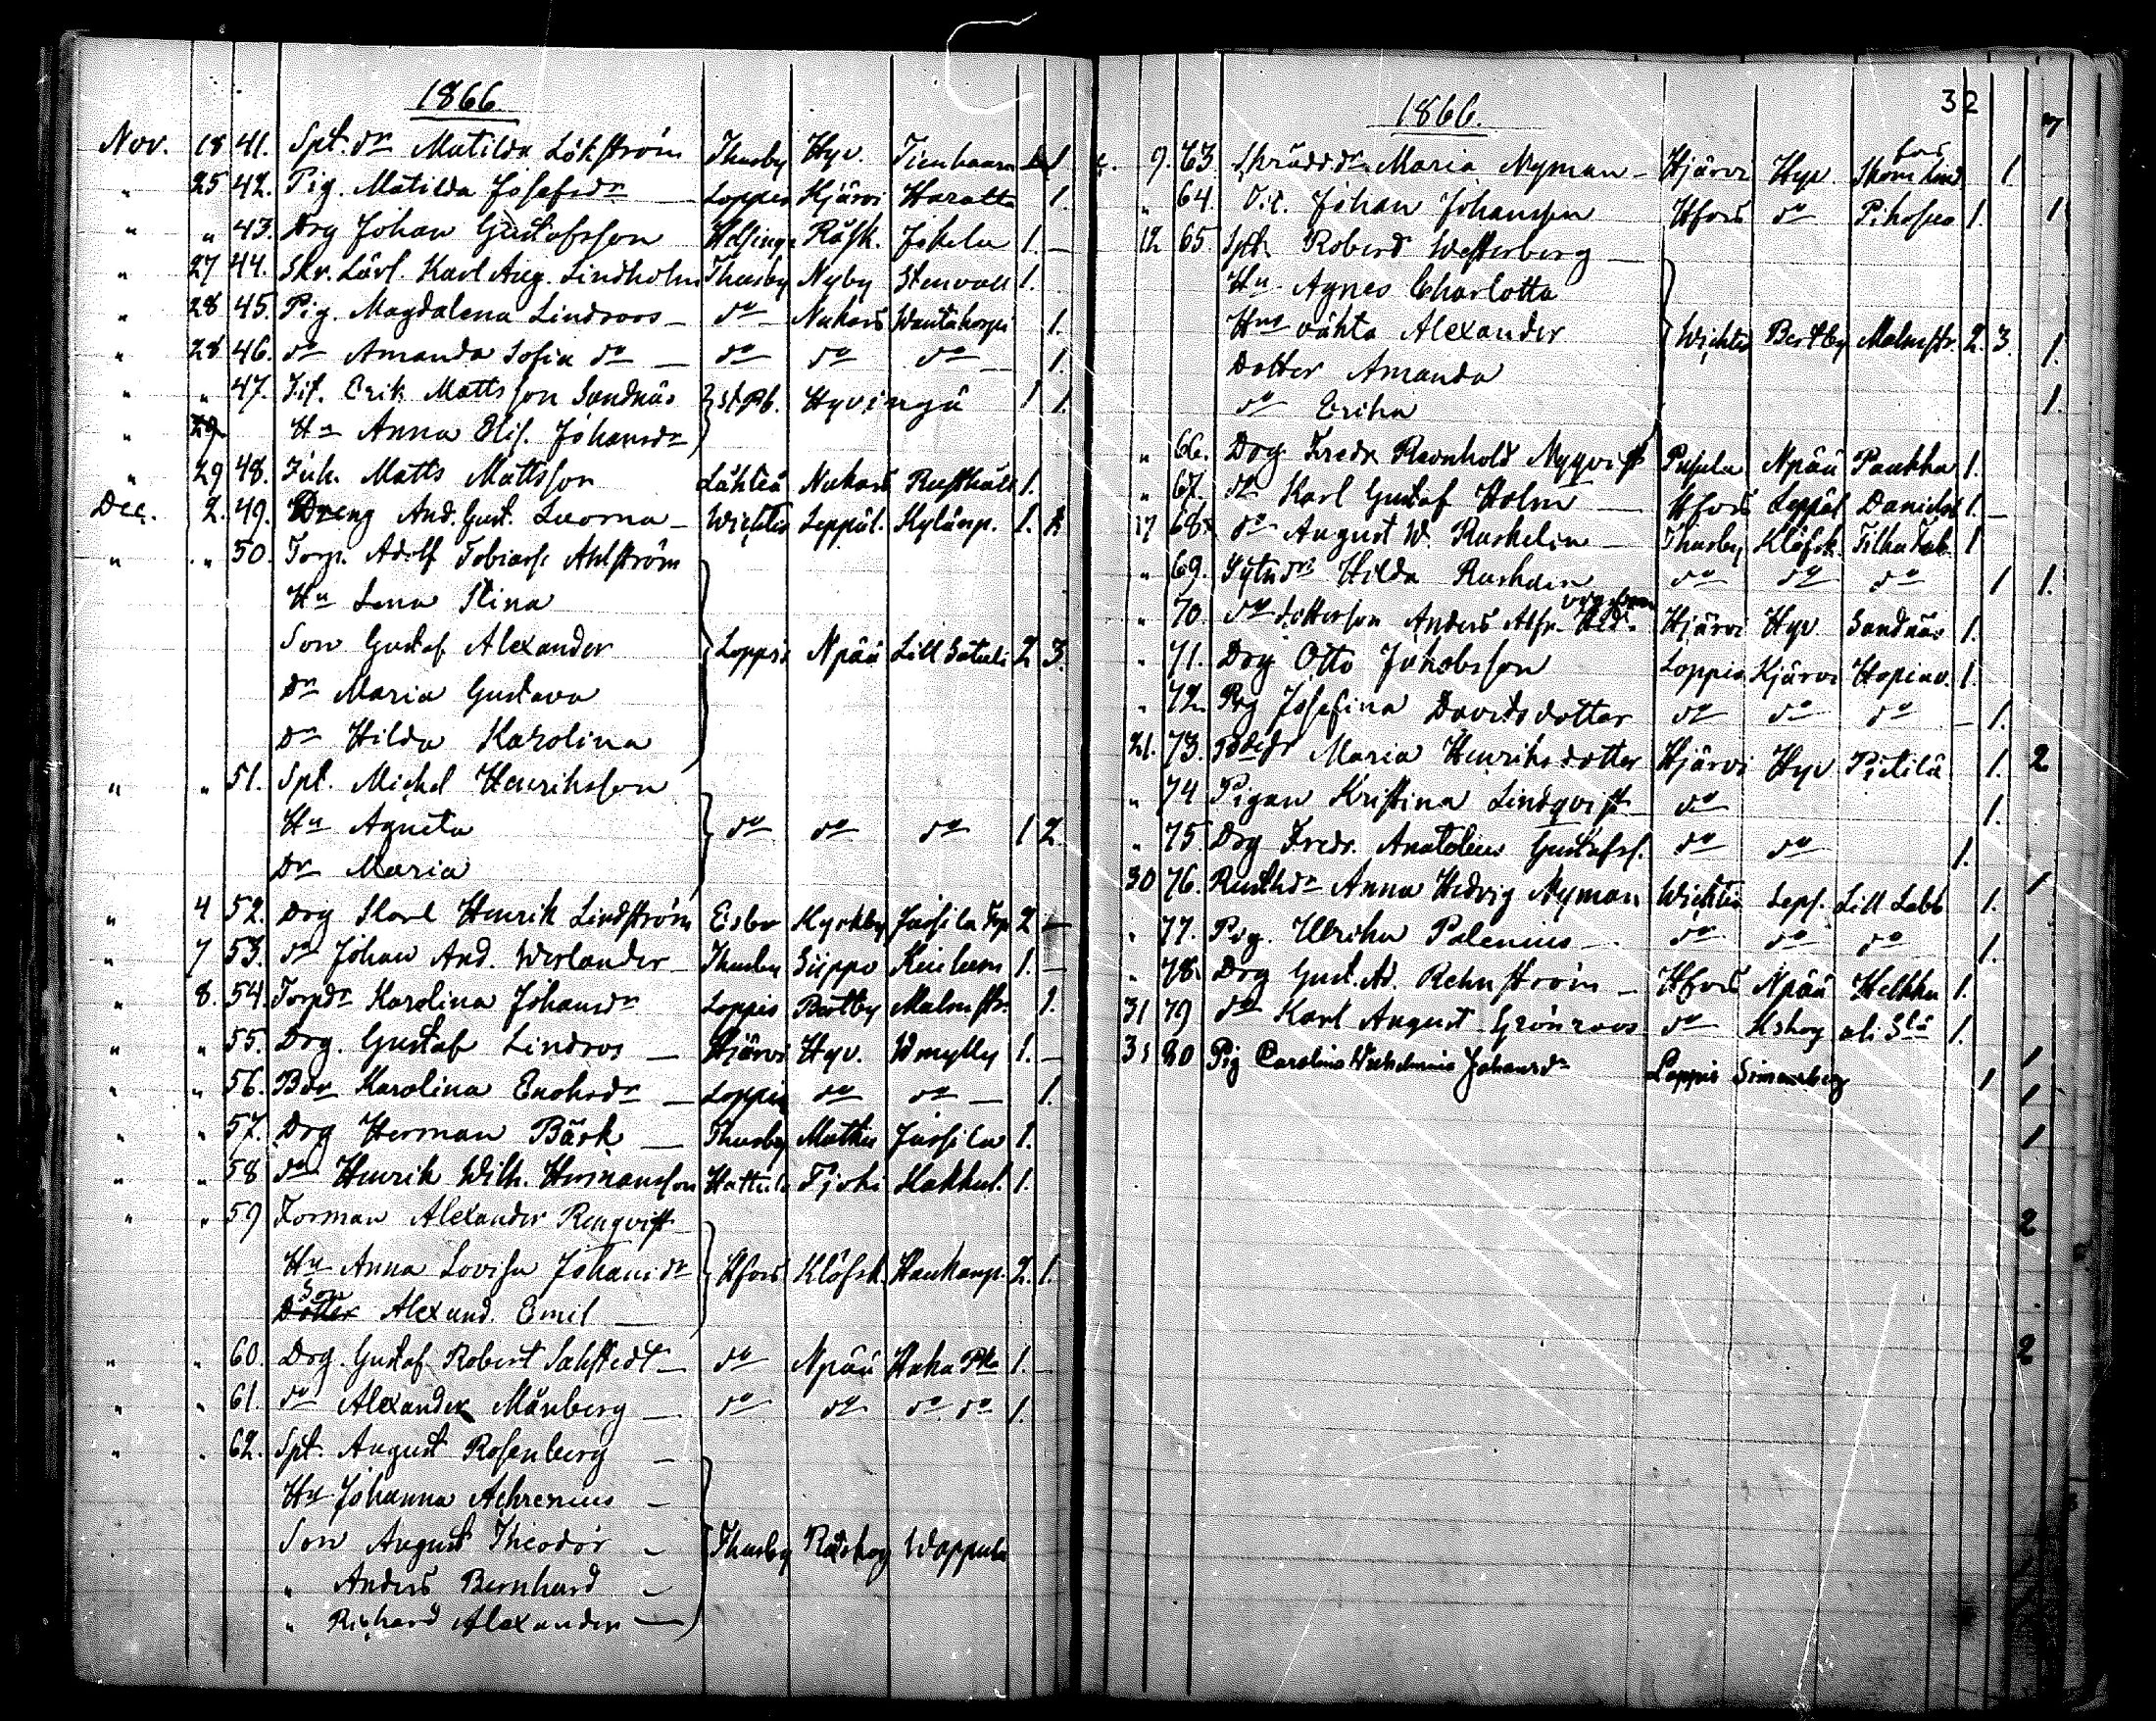 1866
Nov. 18 41. Spt. dr Matilda Lökström Thusby Hyv. Tienhaara 1
" 25 42. Pig. Matilda Josefsdr Loppis Hjärvi Haratta 1.
" " 43. Drg Johan Gustafsson Helsinge Råsk. Jokela 1. —
" 27 44. Skr. Lärl. Karl Aug. Lindholm Thusby Nyby Stenvall 1.
" 28 45. Pig. Magdalena Lindroos — do Nukari Wantakorpi 1.
" 28 46. do Amanda Sofia do — do do do 1.
" " 47. Tif. Erik Mattsson Sandnäs } St.Pb. Hyvingä 1 1.
" 29 Hu Anna Elis. Johansdr
" 29 48. Inh. Matts Mattsson Lähteä Nukari Rusthåll 1.
Dec. 2. 49. Dreng And. Gust. Luoma — Wichtis Leppäl. Kylänp. 1.
" " 50. Torp. Adolf Tobiass. Ahlström
Hu Lena Stina
Son Gustaf Alexander } Loppis Npää Lill Sätuli 2 3.
Dr Maria Gustava
Dr Hilda Karolina
" " 51. Spt. Michel Henriksson
Hu Agneta } do do do 1 2.
Dr Maria
" 4 52. Drg Karl Henrik Lindström Esbo Kyrkby Jussila Trp 2 —
" 7 53. do Johan And. Werlander Thusby Siippo 1. —
" 8. 54. Torpdr Karolina Johansdr Loppis Bertby Malmstr. 1.
" " 55. Drg. Gustaf Lindros — Hjärvi Hyv. Wmylly 1. —
" " 56. Bdr Karolina Enoksdr — Loppis do do — 1.
" " 57. Drg Herman Bäck — Thusby Mutkis Jussila 1.
" " 58 do Henrik Wilh. Hermansson Hattula Tjoki Kakkul. 1.
" " 59 Forman Alexander Renqvist
Hu Anna Lovisa Johansdr } Hfors Klöfsk. Haukanp. 2. 1.
Son Alexand. Emil —
" " 60. Drg. Gustaf Robert Sahlstedt — do Npää Haka Pka 1. —
" " 61. do Alexander Månberg — do do do do 1.
" " 62. Spt. August Rosenberg —
Hu Johanna Achrenius —
Son August Theodor — } Thusby Rödskog Wappula
" Anders Bernhard —
" Richard Alexander —
32
1866.
9. 63. Skrädddr. Maria Nyman — Hjärvi Hyv. 1.
" 64. Johan Johansson Hfors do Pihosuo 1.
12 65. Spt. Robert Westerberg —
Hu Agnes Charlotta
Hns oäkta Alexander } Wichtis Bertby Malmstr. 2. 3.
Dotter Amanda
do Erika
" 66. Drg Fredr Reinhold Nyqvist Pusula Npää Paukka 1.
" 67. do Karl Gustaf Holm — Hfors Leppäl Daniels 1. —
17 68. do August W. Raskelin — Thusby Klöfsk. Tilku Tab. 1
" 69. Sytndr Hilda do do do 1
" 70. do dotterson Anders Alfr. Hjärvi Hyv Sandnäs 1.
" 71. Drg Otto Jakobsson Loppis Kjärvi Hopiav. 1.
" 72. Pig Josefina Davidsdotter do do do — 1.
21. 73. Maria Henriksdotter Hjärvi Hyv Pietilä 1.
" 74 Pigan Kristina Lindqvist do 1.
" 75. Drg Fredr. Anatolius Gustafss. do do 1.
30 76. Rusthdr Anna Hedvig Nyman Wichtis Lepp. Lill Labb 1.
" 77. Pig. Ulrika Palenius — do do do 1.
" 78. Drg Gust. Ad. Rehnström — Hfors Npää Helkka 1.
31 79 do Karl August Grönroos do Kskog ali Slä 1.
31 80 Pig Carolina Wilhelmina Johansdr Loppis Simonberg 1